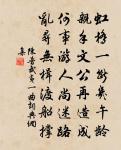 虹橋一斷莫千齡
親手文公再造成
何事游人尚迷路
亂尋無楫渡船撐
陳普武夷一曲詞典網
集